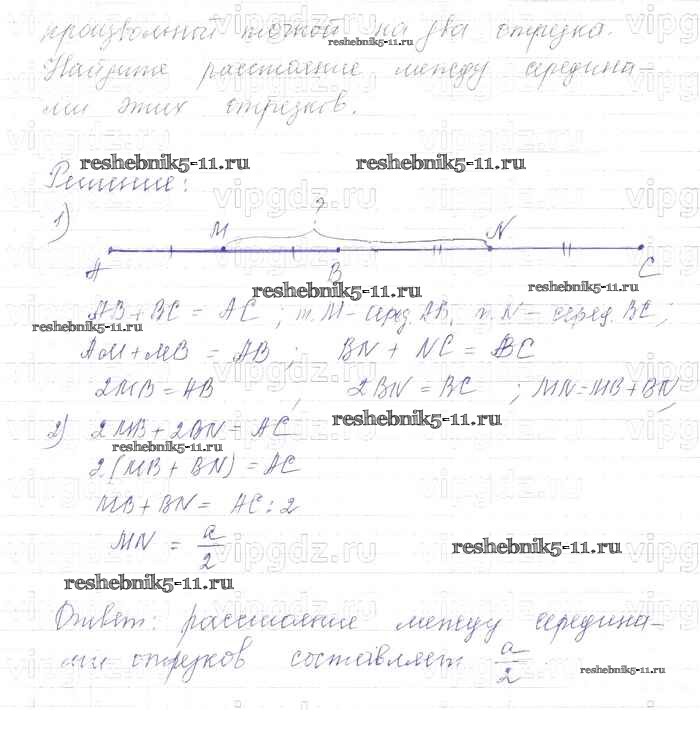 произвольной точкой на два отрезка.
Найдите расстояние между середина-
ми этих отрезков.
Решение:
1)
?
M N
A B C
AB + BC = AC ; т. M - серед. AB, т. N - серед. BC ;
AM + MB = AB ; BN + NC = BC
2MB = AB , 2BN = BC ; MN = MB + BN ,
2) 2MB + 2BN = AC
2(MB + BN) = AC
MB + BN = AC : 2
MN = a/2
Ответ: расстояние между середина-
ми отрезков составляет a/2
reshebnik5-11.ru
reshebnik5-11.ru
reshebnik5-11.ru
reshebnik5-11.ru
reshebnik5-11.ru
reshebnik5-11.ru
reshebnik5-11.ru
reshebnik5-11.ru
reshebnik5-11.ru
reshebnik5-11.ru
reshebnik5-11.ru
vipgdz.ru